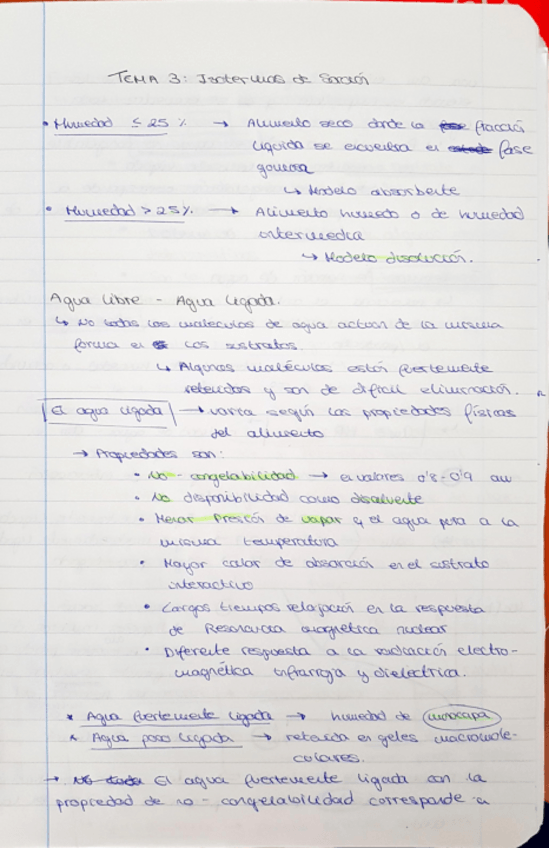 TEMA 3: Isotermas de Sorción
• Humedad ≤ 25 % → Alimento seco donde la fracción
líquida se encuentra en fase
gaseosa
↳ Modelo absorbente
• Humedad > 25 %. → Alimento humedo o de humedad
intermedia
↳ Modelo disolución.
Agua libre - Agua ligada.
↳ No todas las moléculas de agua actuan de la misma
forma en los sustratos.
↳ Algunas moléculas están fuertemente
retenidas y son de difícil eliminación.
El agua ligada → varia según las propiedades físicas
del alimento
→ Propiedades son:
• No - congelabilidad → a valores 0'8 - 0'9 aw
• No disponibilidad como disolvente
• Menor Presión de vapor q el agua pura a la
misma temperatura
• Mayor calor de absorción en el sustrato
interactivo
• Largos tiempos relajación en la respuesta
de Resonancia magnética nuclear
• Diferente respuesta a la radiación electro-
magnética infrarroja y dielectrica.
* Agua fuertemente ligada → humedad de monocapa
* Agua poco ligada → retenida en geles macromole-
culares.
→ El agua fuertemente ligada con la
propiedad de no - congelabilidad corresponde a